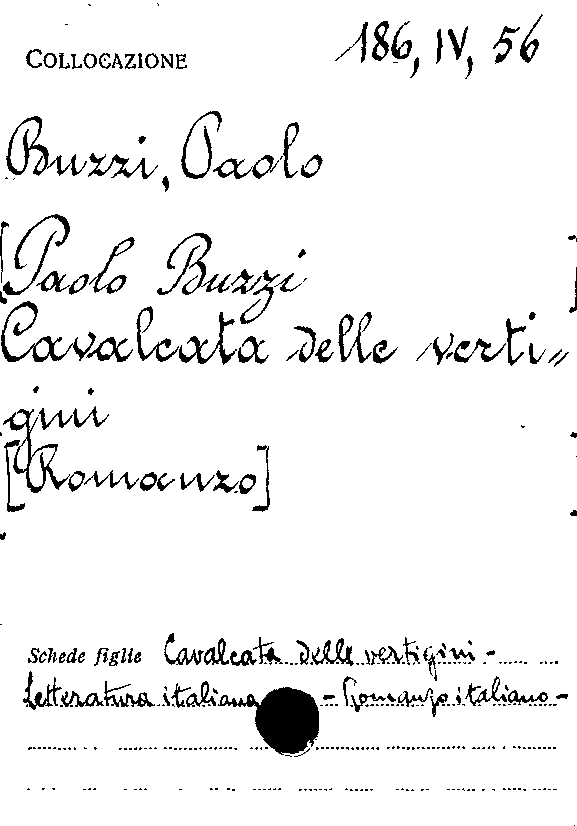 COLLOCAZIONE 186, IV, 56
Buzzi, Paolo
[Paolo Buzzi]
Cavalcata delle verti=
gini
[Romanzo]
Schede figlie Cavalcata delle vertigini -
Letteratura italiana - Romanzo italiano -